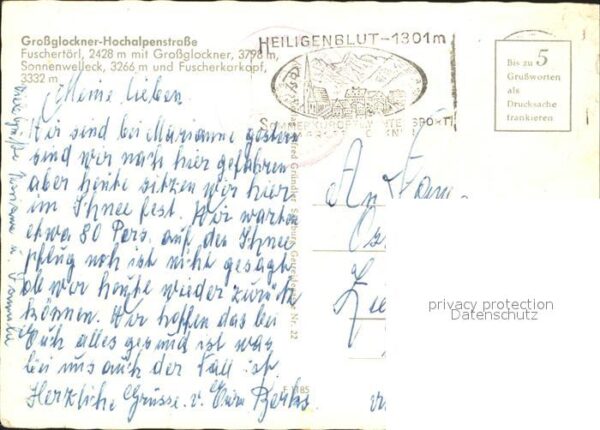 Großglockner-Hochalpenstraße
Fuschertörl, 2428 m mit Großglockner, 3798 m,
Sonnenwelleck, 3266 m und Fuscherkarkopf,
3332 m
HEILIGENBLUT-1301m
Bis zu 5
Grußworten
als
Drucksache
frankieren
Meine lieben
Wir sind bei Marianne gestern
sind wir nach hier gefahren
aber heute sitzen wir hier
im Schnee fest. Wir warten
etwa 80 Pers. auf des Schnee
pflug noch ist nicht gesagt
ob wir heute wieder zurück
können. Wir hoffen das bei
Euch alles gesund ist was
bei uns auch der Fall ist.
Herzliche Grüsse. v.
Viele Grüße
An Fam.
privacy protection
Datenschutz